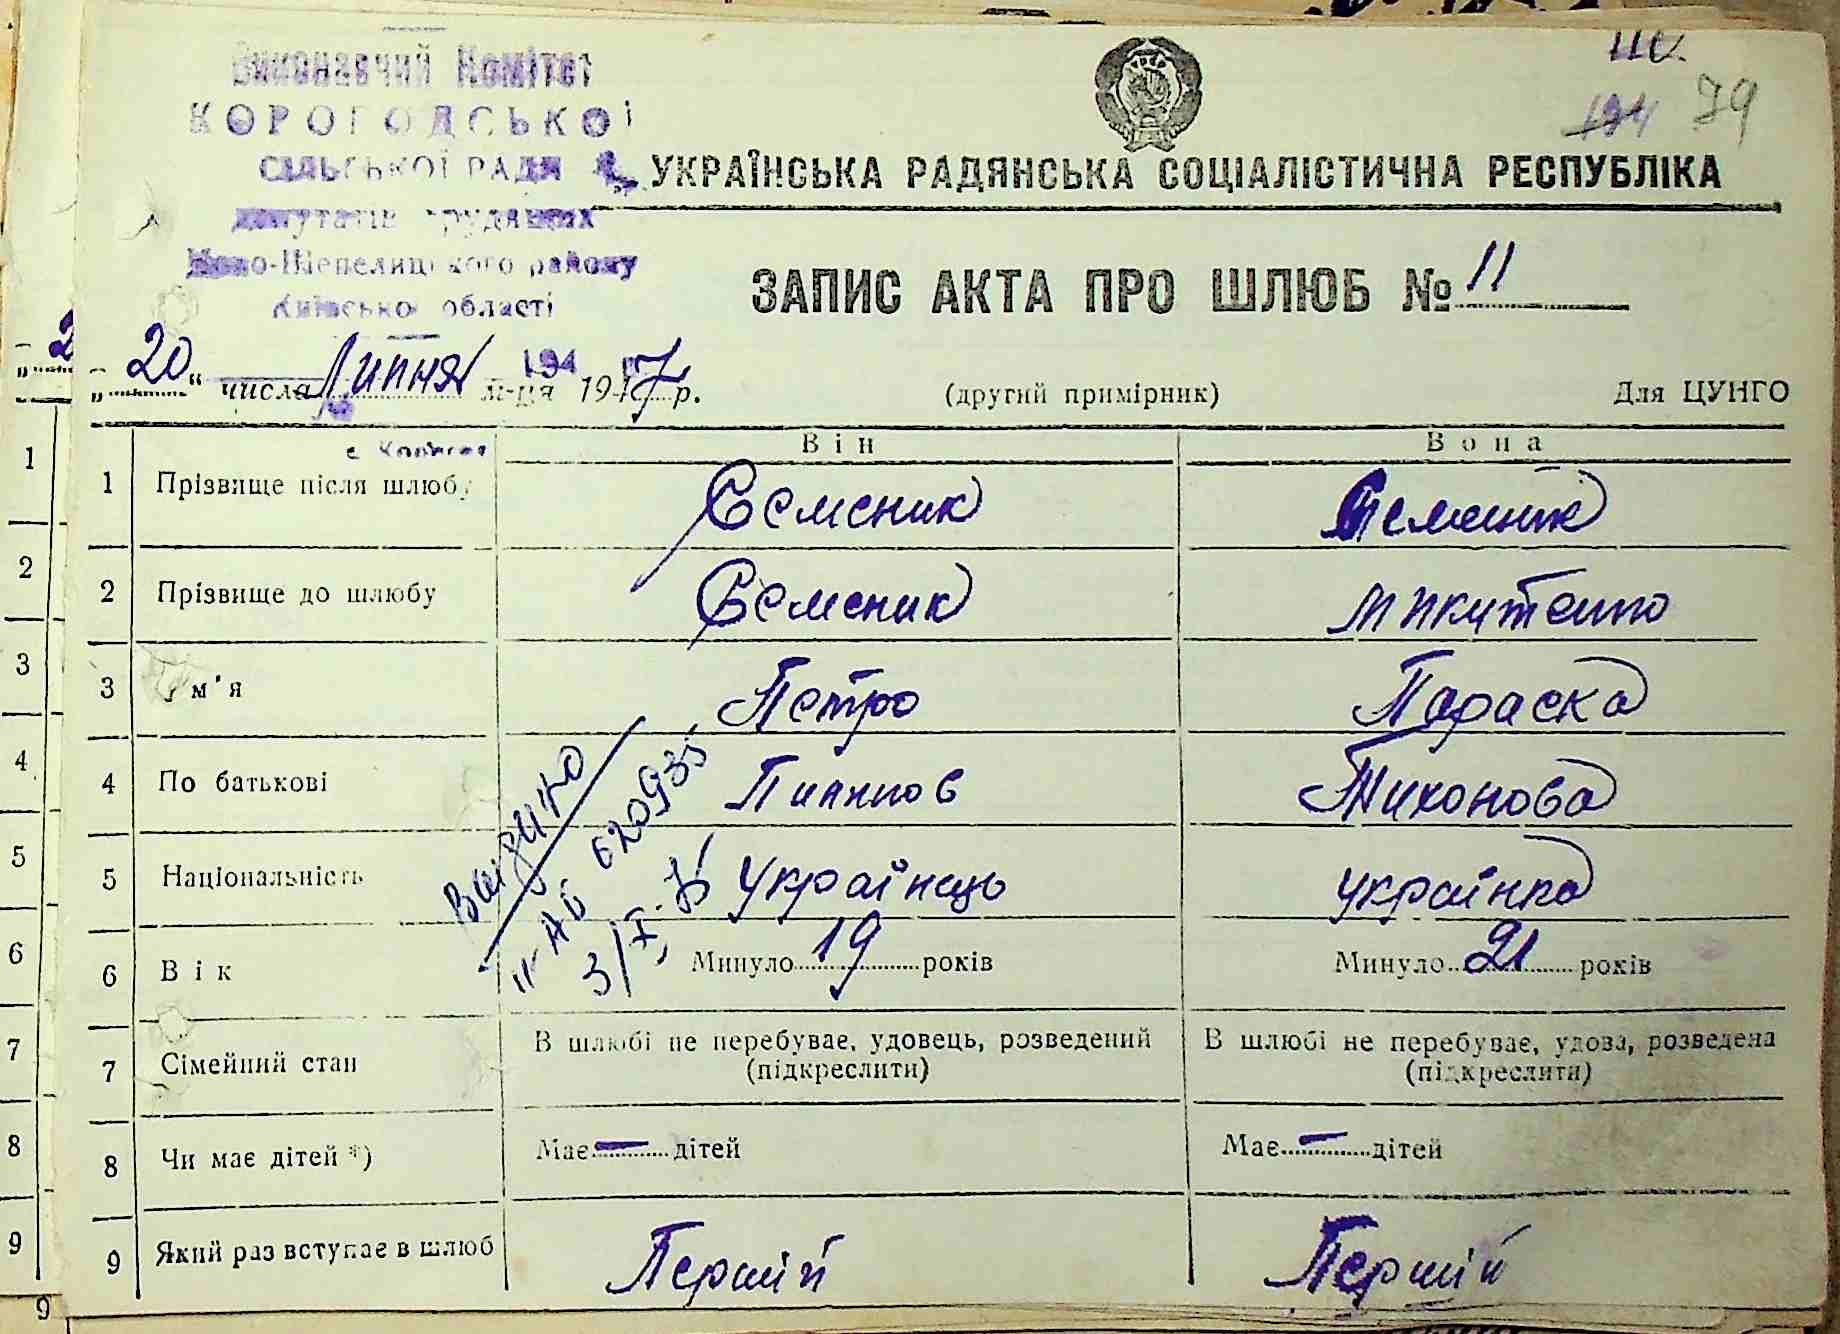 Виконавчий Комітет
КОРОГОДСЬКОЇ
СІЛЬСЬКОЇ РАДИ
депутатів трудящих
Ново-Шепелицького району
Київської області
194 79
УКРАЇНСЬКА РАДЯНСЬКА СОЦІАЛІСТИЧНА РЕСПУБЛІКА
ЗАПИС АКТА ПРО ШЛЮБ № 11
„20“ числа Липня м-ця 1947 р.
(другий примірник)
Для ЦУНГО
Він Вона
1 Прізвище після шлюбу Семеник Семеник
2 Прізвище до шлюбу Семеник Микитенко
3 Ім'я Петро Параска
4 По батькові Пилипов Тихонова
5 Національність Українець українка
6 Вік Минуло 19 років Минуло 21 років
7 Сімейний стан В шлюбі не перебуває, удовець, розведений (підкреслити) В шлюбі не перебуває, удова, розведена (підкреслити)
8 Чи має дітей *) Має — дітей Має — дітей
9 Який раз вступає в шлюб Перший Перший
II-АБ 620935
1
2
3
4
5
6
7
8
9
9